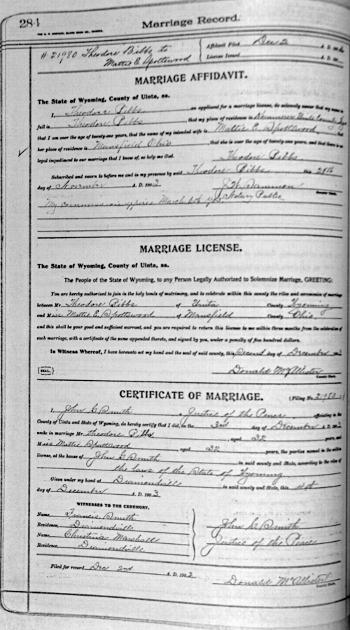 284
Marriage Record.
# 21980 Theodore Bibbs to
Mattie E Spottwood
Affidavit Filed Dec 2
License Issued
MARRIAGE AFFIDAVIT.
The State of Wyoming, County of Uinta, ss.
I, Theodore Bibbs an applicant for a marriage license, do solemnly swear that my name in
full is Theodore Bibbs that my place of residence is
that I am over the age of twenty-one years, that the name of my intended wife is Mattie E Spottwood
her place of residence is Mansfield Ohio that she is over the age of twenty-one years, and that there is no
legal impediment to our marriage that I know of, so help me God.
Theodore Bibbs
Subscribed and sworn to before me and in my presence by said Theodore Bibbs this 28th
day of November A. D. 190
My commission expires March
Notary Public
MARRIAGE LICENSE.
The State of Wyoming, County of Uinta, ss.
The People of the State of Wyoming, to any Person Legally Authorized to Solemnize Marriage, GREETING:
You are hereby authorized to join in the holy bonds of matrimony, and to celebrate within this county the rites and ceremonies of marriage
between Mr. Theodore Bibbs of Uinta County, Wyoming
and Miss Mattie E Spottwood of Mansfield County, Ohio
and this shall be your good and sufficient warrant, and you are required to return this license to me within three months from the celebration of
such marriage, with a certificate of the same appended thereto, and signed by you, under a penalty of five hundred dollars.
In Witness Whereof, I have hereunto set my hand and the seal of said county, this Second day of December
Donald McAllister
SEAL
CERTIFICATE OF MARRIAGE.
(Filing No.
I, John G Smith a Justice of the Peace officiating in the
County of Uinta and State of Wyoming, do hereby certify that I did, on the 3rd day of December A. D. 190
unite in marriage Mr. Theodore Bibbs aged 32 years, and
Miss Mattie Spottwood aged 22 years, the parties named in the within
license, at the house of John G Smith in said county and State, according to the rites of
the laws of the State of Wyoming
Given under my hand at Diamondville in said county and State, this 4th
day of December A. D. 190 3
WITNESSES TO THE CEREMONY.
Name, Francis Smith
Residence, Diamondville
Name, Christina Marshall
Residence, Diamondville
John G Smith
Justice of the Peace
Filed for record Dec 2nd A. D. 190
Donald McAllister